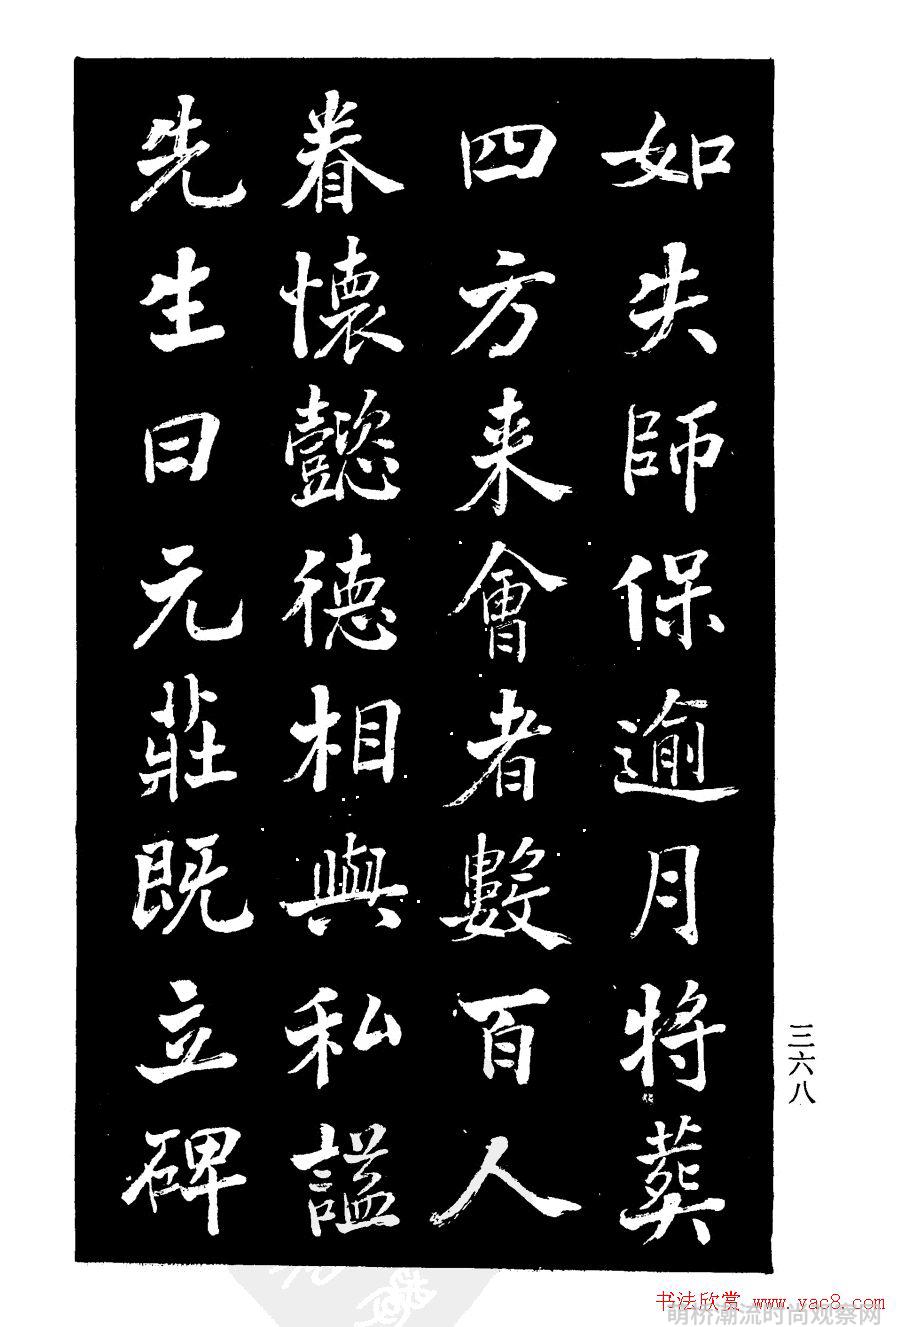 如失師保逾月將葬
四方来會者數百人
眷懷懿德相與私謚
先生曰元莊既立碑
三六八
书法欣赏 www.yac8.com
萌桥潮流时尚观察网